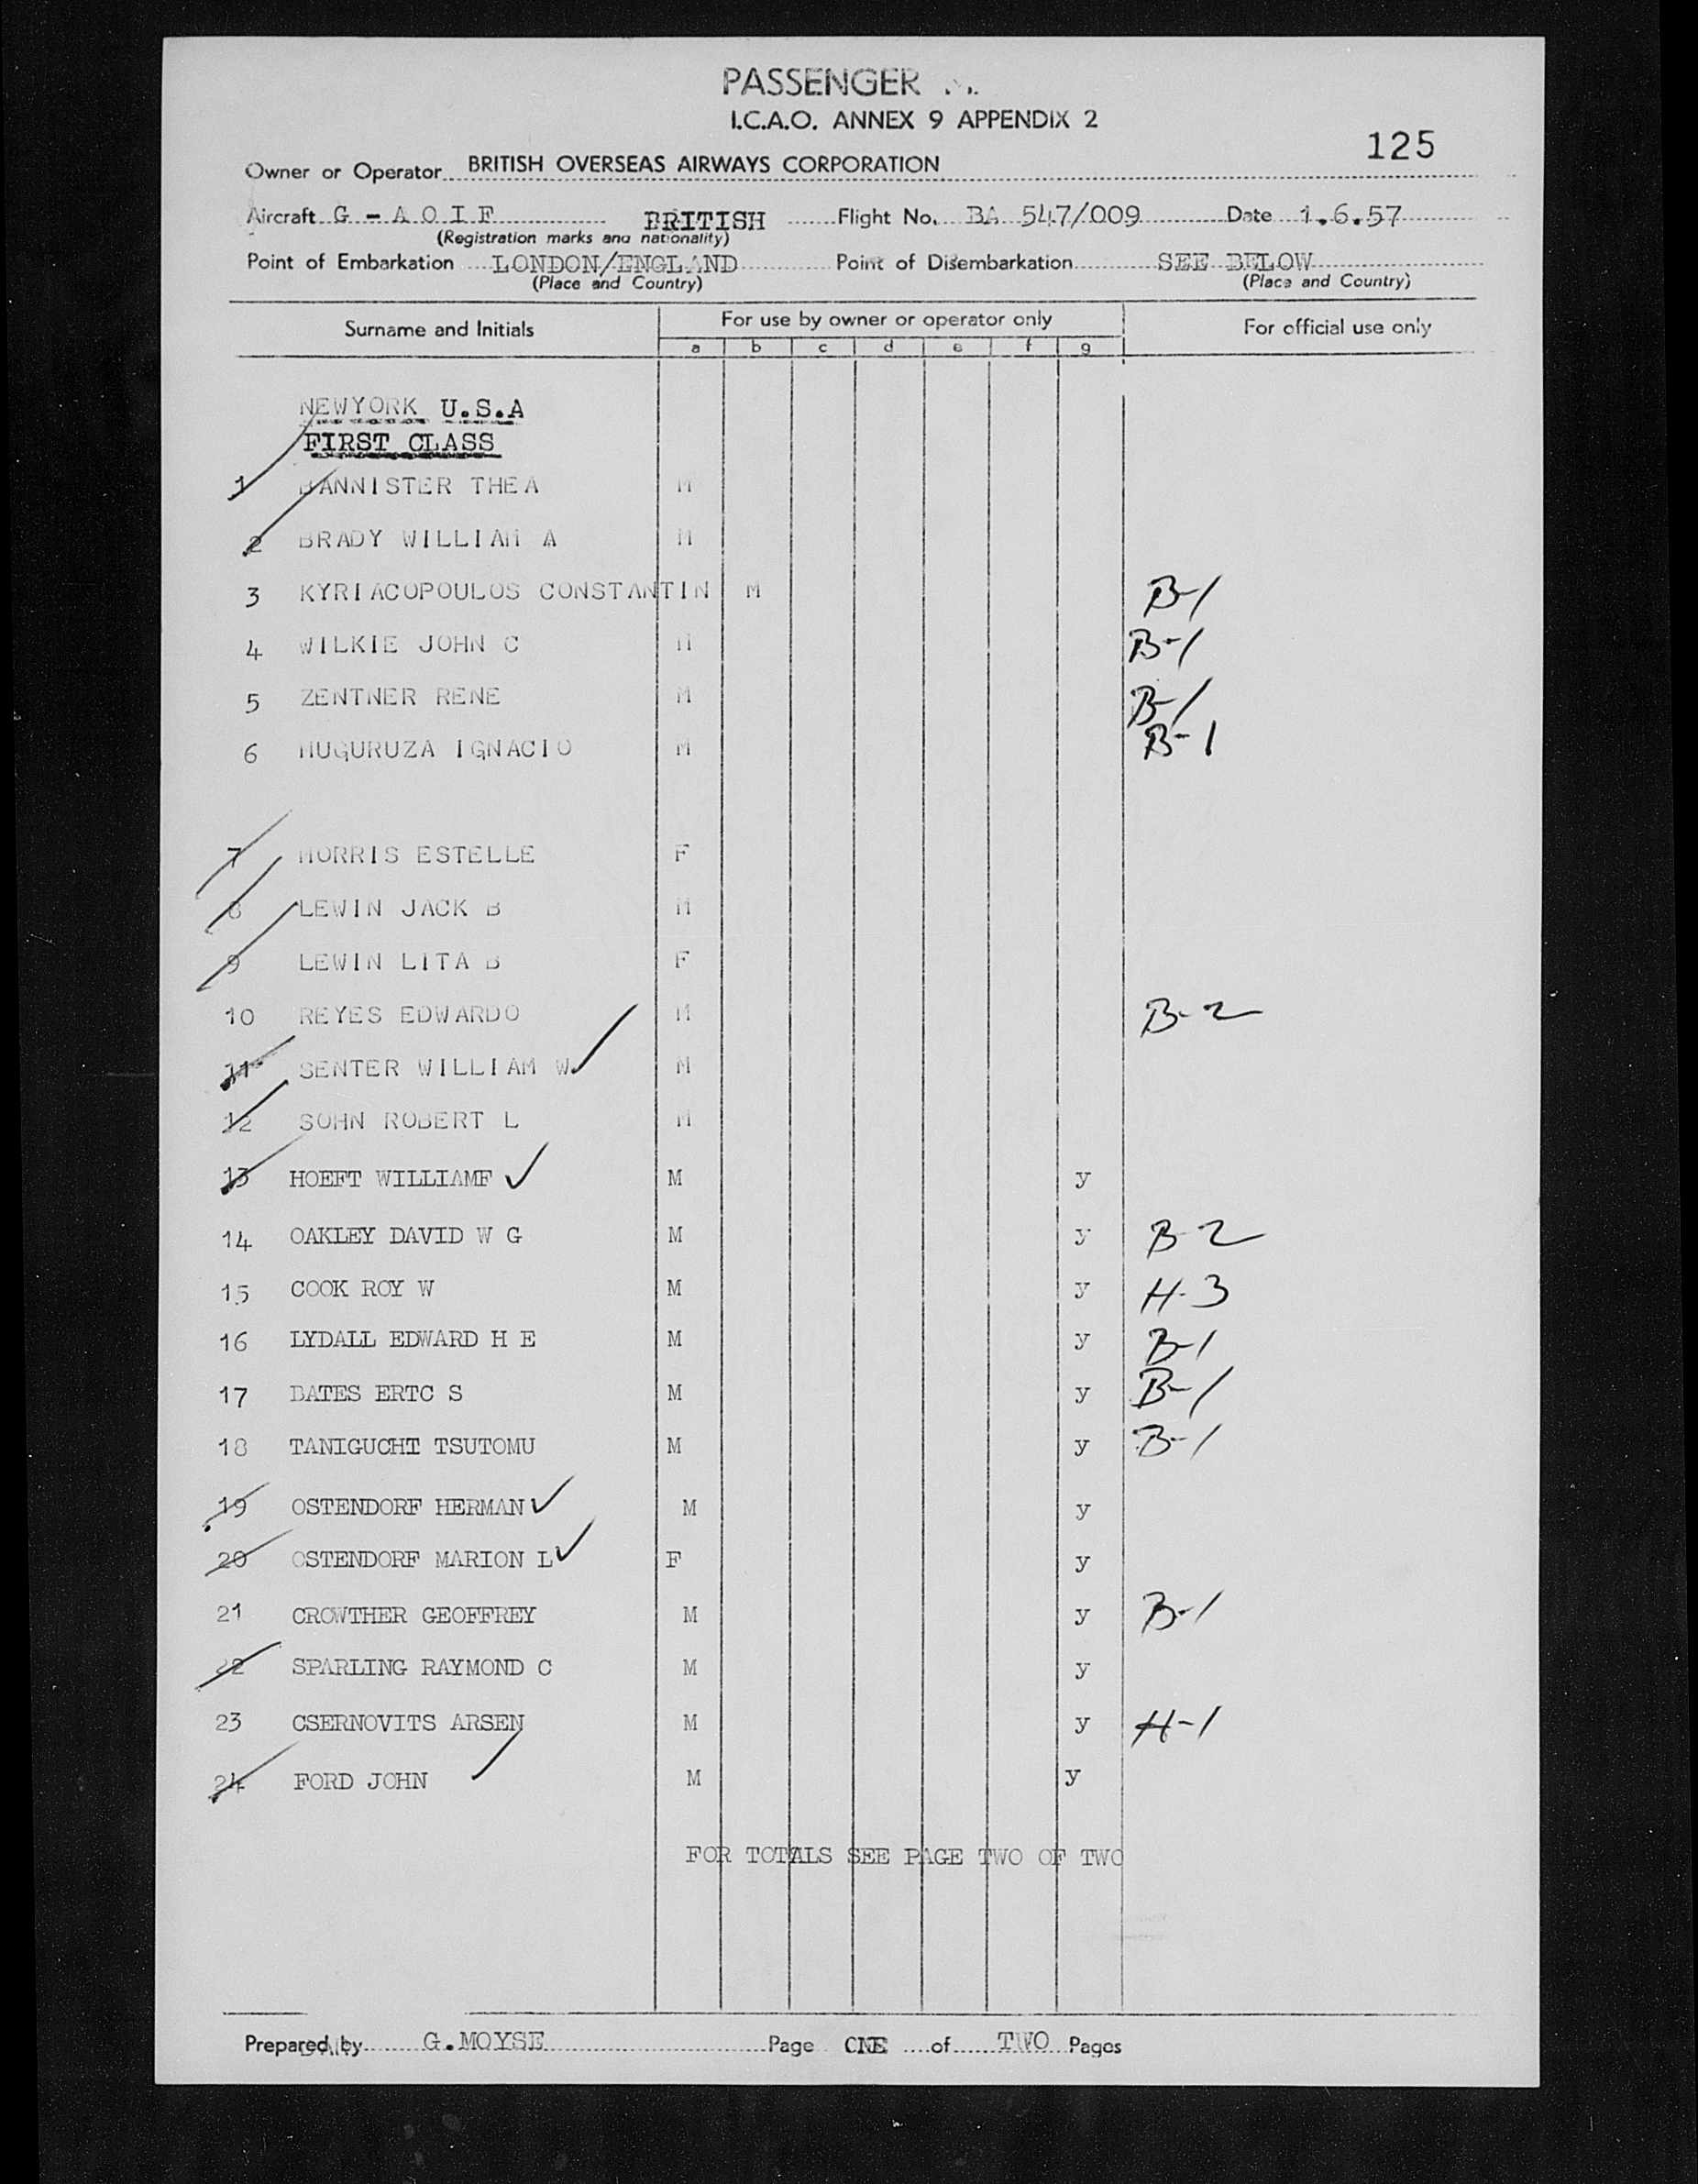 PASSENGER
I.C.A.O. ANNEX 9 APPENDIX 2
125
Owner or Operator BRITISH OVERSEAS AIRWAYS CORPORATION
Aircraft G - A O I F BRITISH Flight No. BA 547/009 Date 1.6.57
(Registration marks and nationality)
Point of Embarkation LONDON/ENGLAND Point of Disembarkation SEE BELOW
(Place and Country) (Place and Country)
Surname and Initials For use by owner or operator only For official use only
a b c d e f g
NEWYORK U.S.A
FIRST CLASS
1 BANNISTER THEA M
2 BRADY WILLIAM A M
3 KYRIACOPOULOS CONSTANTIN M B-1
4 WILKIE JOHN C M B-1
5 ZENTNER RENE M B-1
6 MUGURUZA IGNACIO M B-1
7 MORRIS ESTELLE F
8 LEWIN JACK B M
9 LEWIN LITA B F
10 REYES EDWARDO M B-2
11 SENTER WILLIAM W M
12 SOHN ROBERT L M
13 HOEFT WILLIAMF M y
14 OAKLEY DAVID W G M y B-2
15 COOK ROY W M y H-3
16 LYDALL EDWARD H E M y B-1
17 BATES ERTC S M y B-1
18 TANIGUCHT TSUTOMU M y B-1
19 OSTENDORF HERMAN M y
20 OSTENDORF MARION L F y
21 CROWTHER GEOFFREY M y B-1
22 SPARLING RAYMOND C M y
23 CSERNOVITS ARSEN M y H-1
24 FORD JOHN M y
FOR TOTALS SEE PAGE TWO OF TWO
Prepared by G.MOYSE Page ONE of TWO Pages